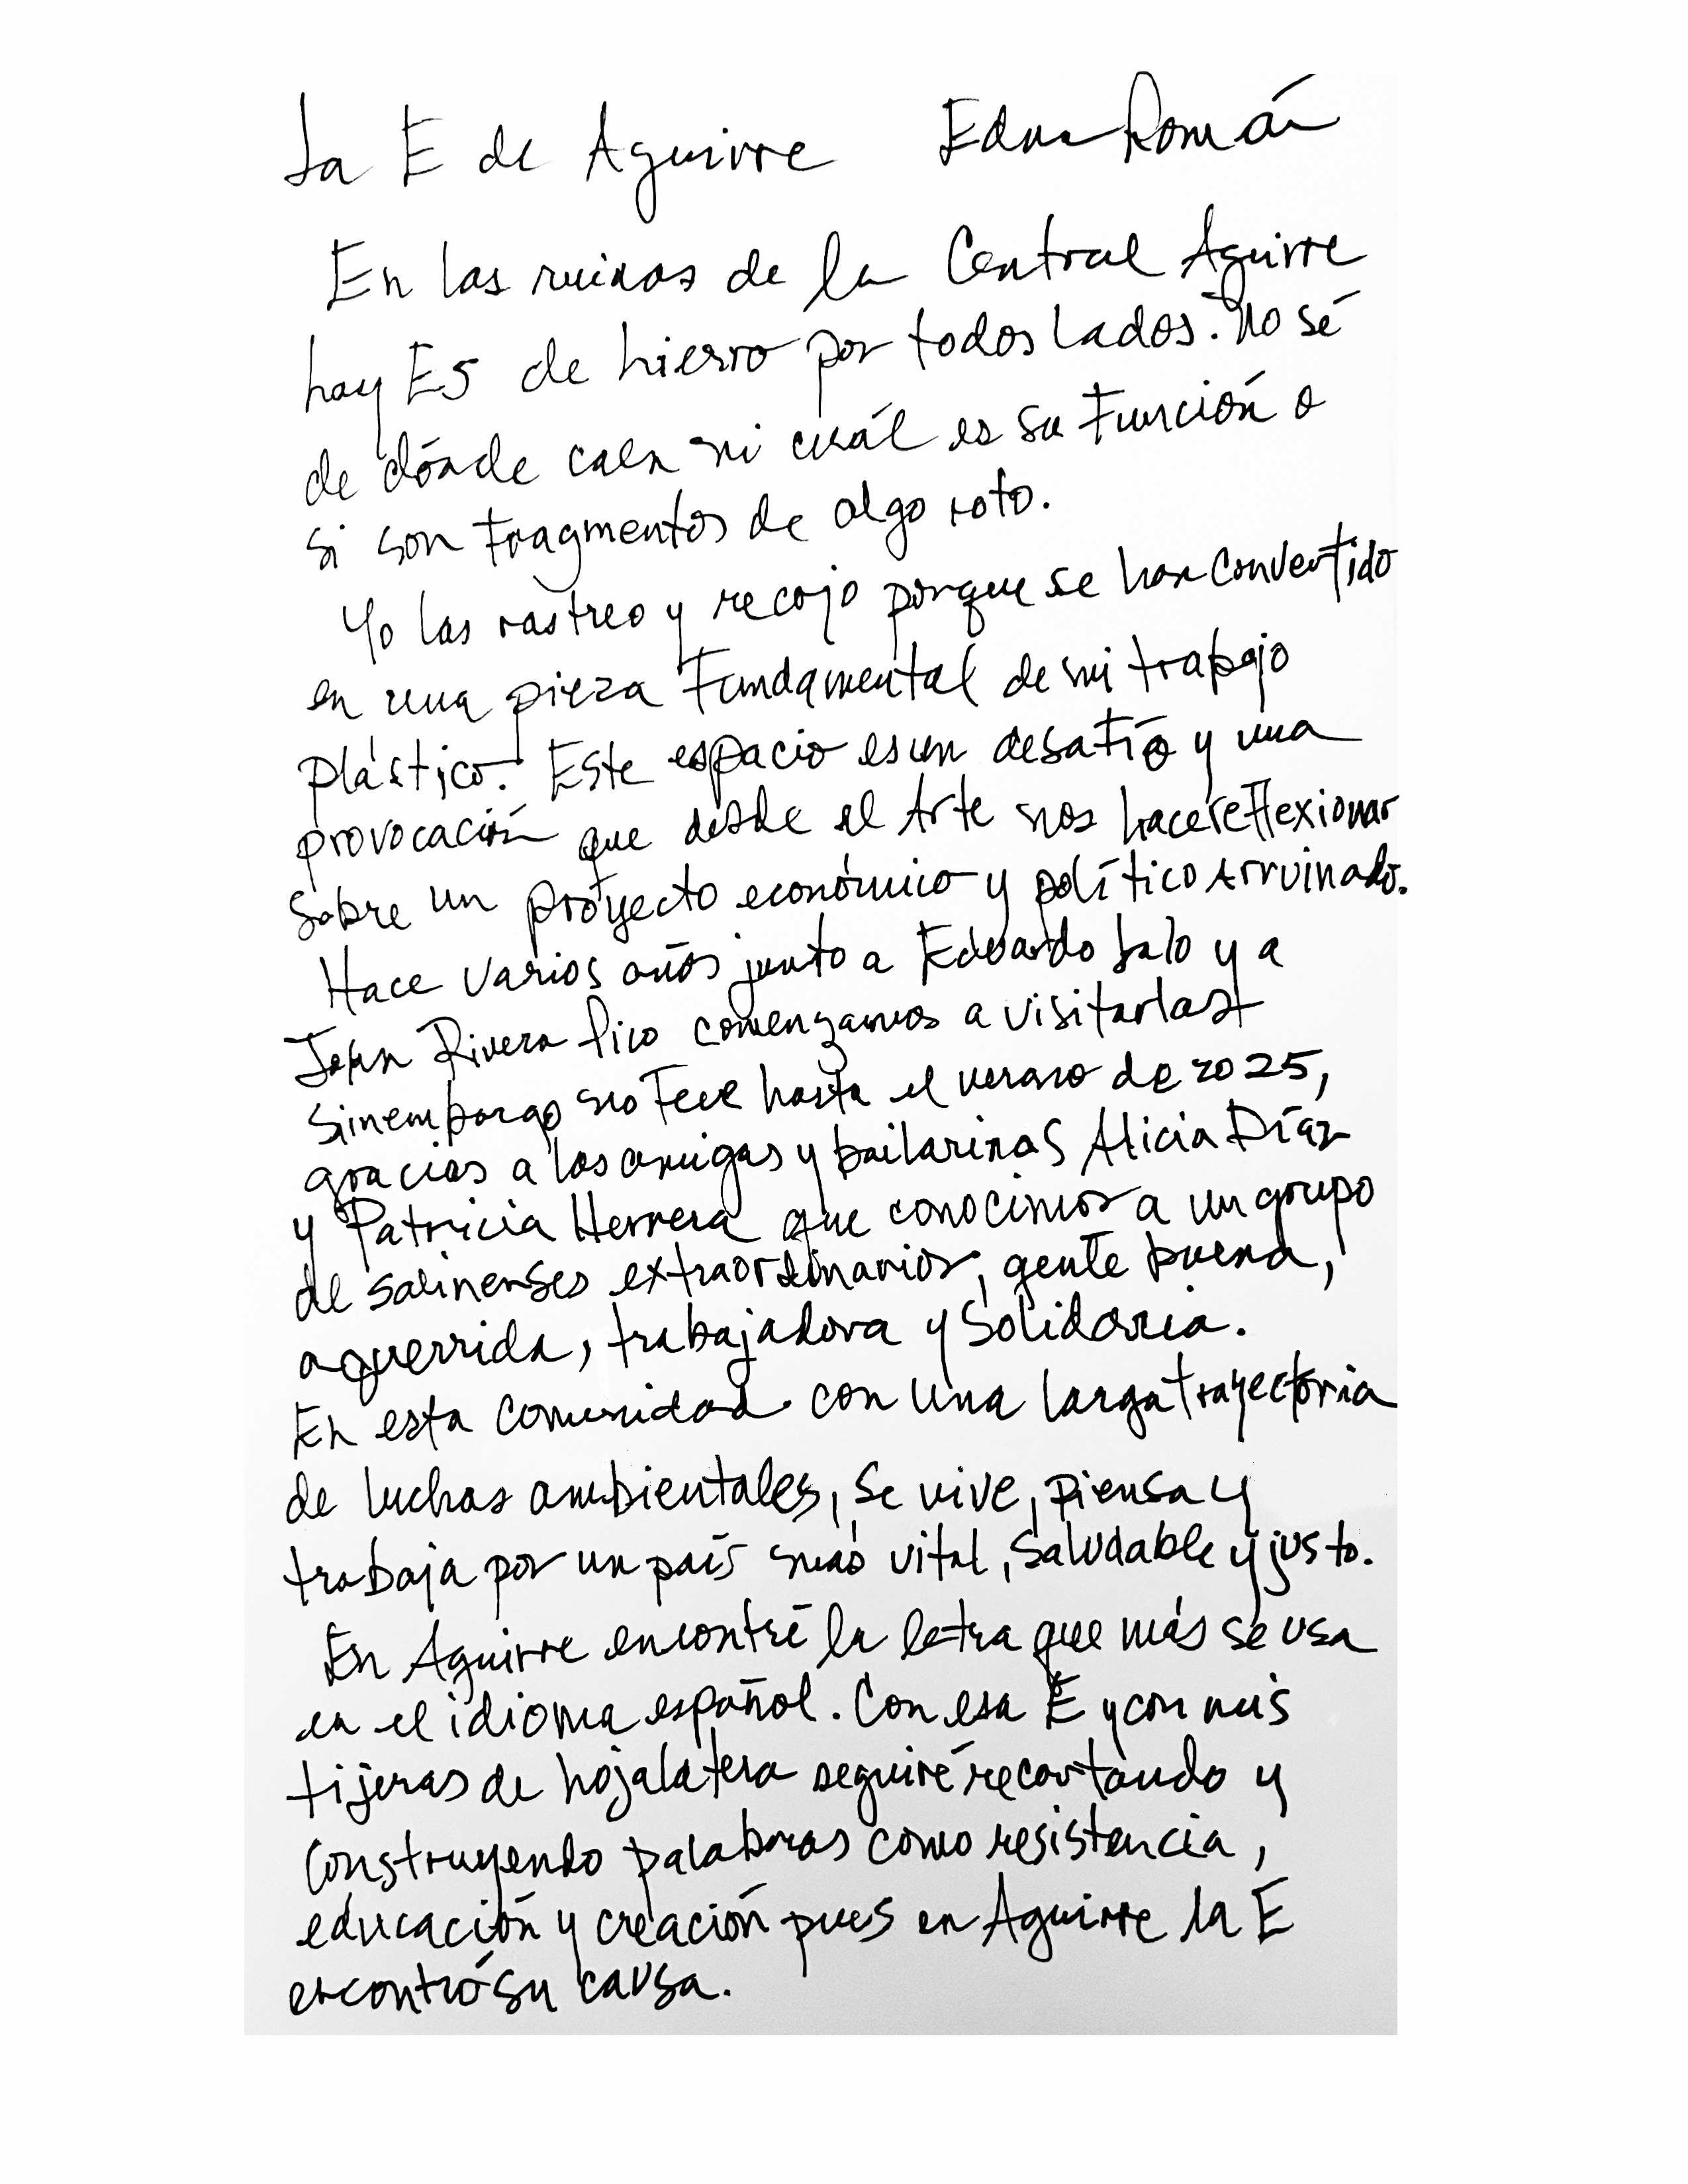 La E de Aguirre Edna Román
En las ruinas de la Central Aguirre
hay Es de hierro por todos lados. No sé
de dónde caen ni cuál es su función o
si son fragmentos de algo roto.
Yo las rastreo y recojo porque se han convertido
en una pieza fundamental de mi trabajo
plástico. Este espacio es un desafío y una
provocación que desde el Arte nos hace reflexionar
sobre un proyecto económico y político arruinado.
Hace varios años junto a Eduardo Lalo y a
Johan Rivera Pico comenzamos a visitarlas
sin embargo no fue hasta el verano de 2025,
gracias a las amigas y bailarinas Alicia Díaz
y Patricia Herrera que conocimos a un grupo
de salinenses extraordinarios, gente buena,
aguerrida, trabajadora y solidaria.
En esta comunidad con una larga trayectoria
de luchas ambientales, se vive, piensa y
trabaja por un país más vital, saludable y justo.
En Aguirre encontré la letra que más se usa
en el idioma español. Con esa E y con mis
tijeras de hojalatera seguiré recortando y
construyendo palabras como resistencia,
educación y creación pues en Aguirre la E
encontró su causa.